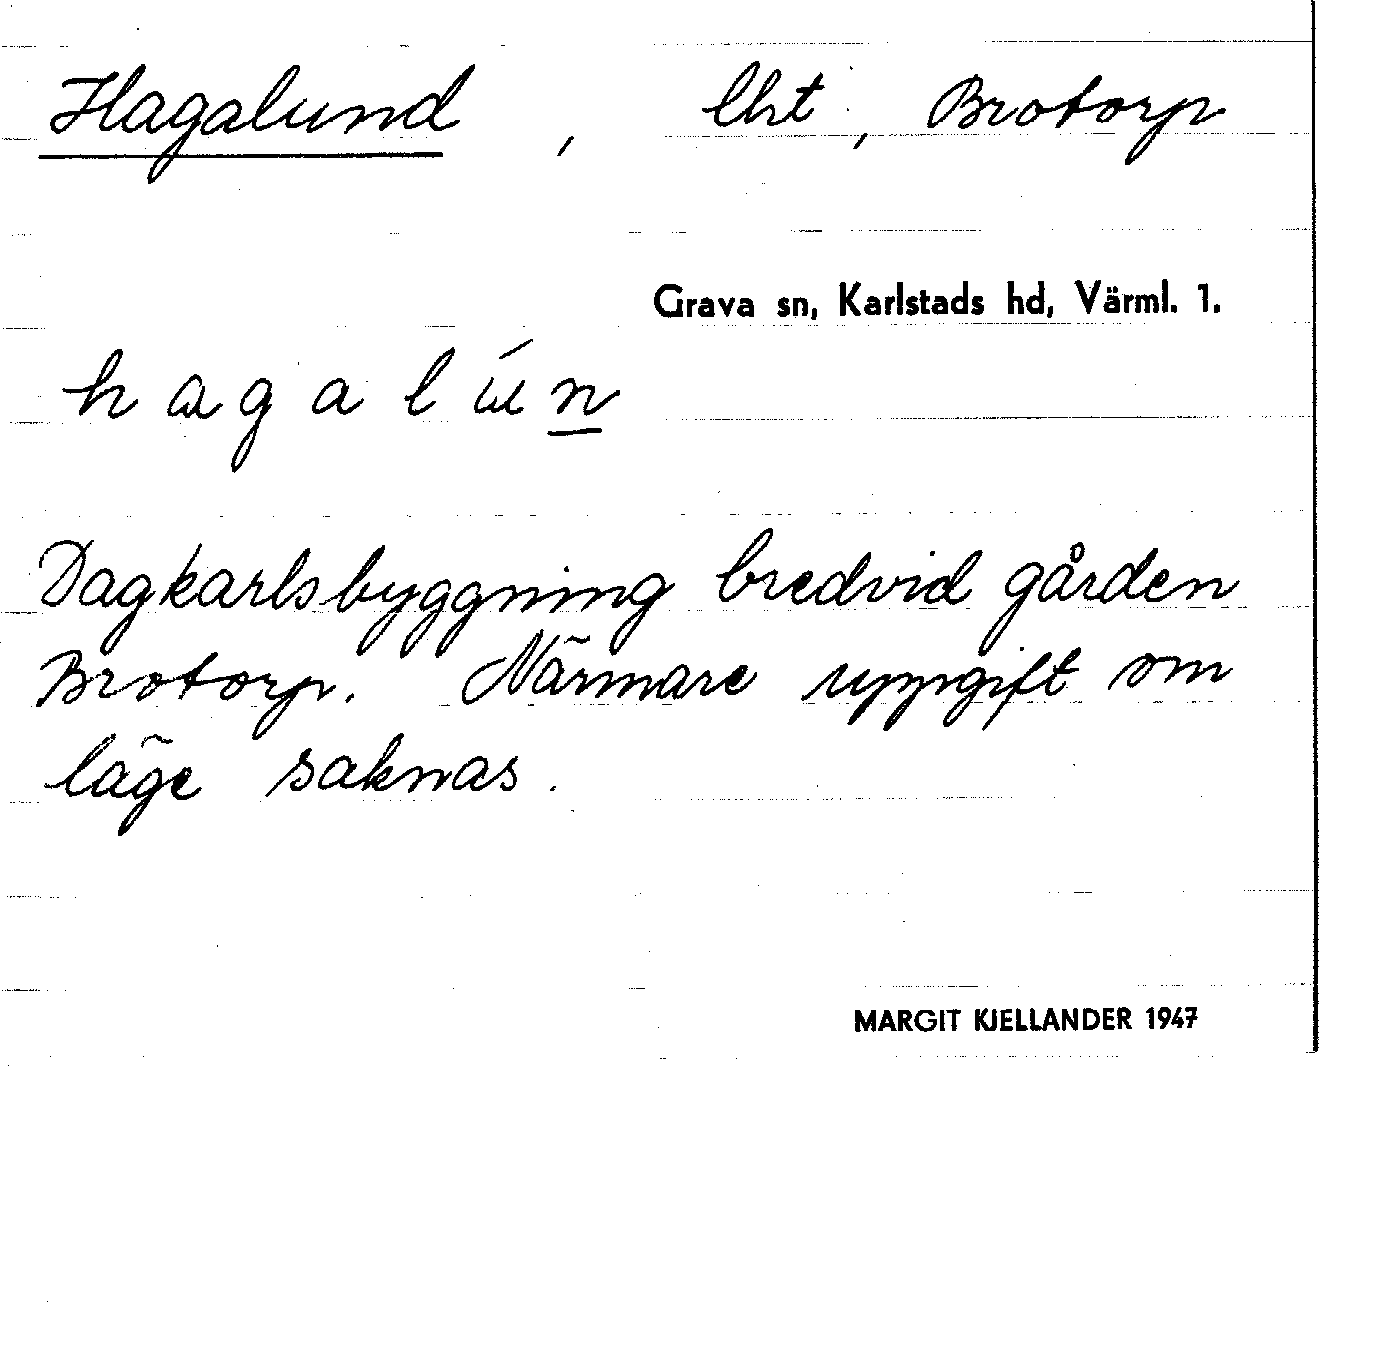 Hagalund, lht, Brotorp
Grava sn, Karlstads hd, Värml. 1.
hagalún̲
Dagkarlsbyggning bredvid gården
Brotorp. Närmare uppgift om
läge saknas.
MARGIT KJELLANDER 1947